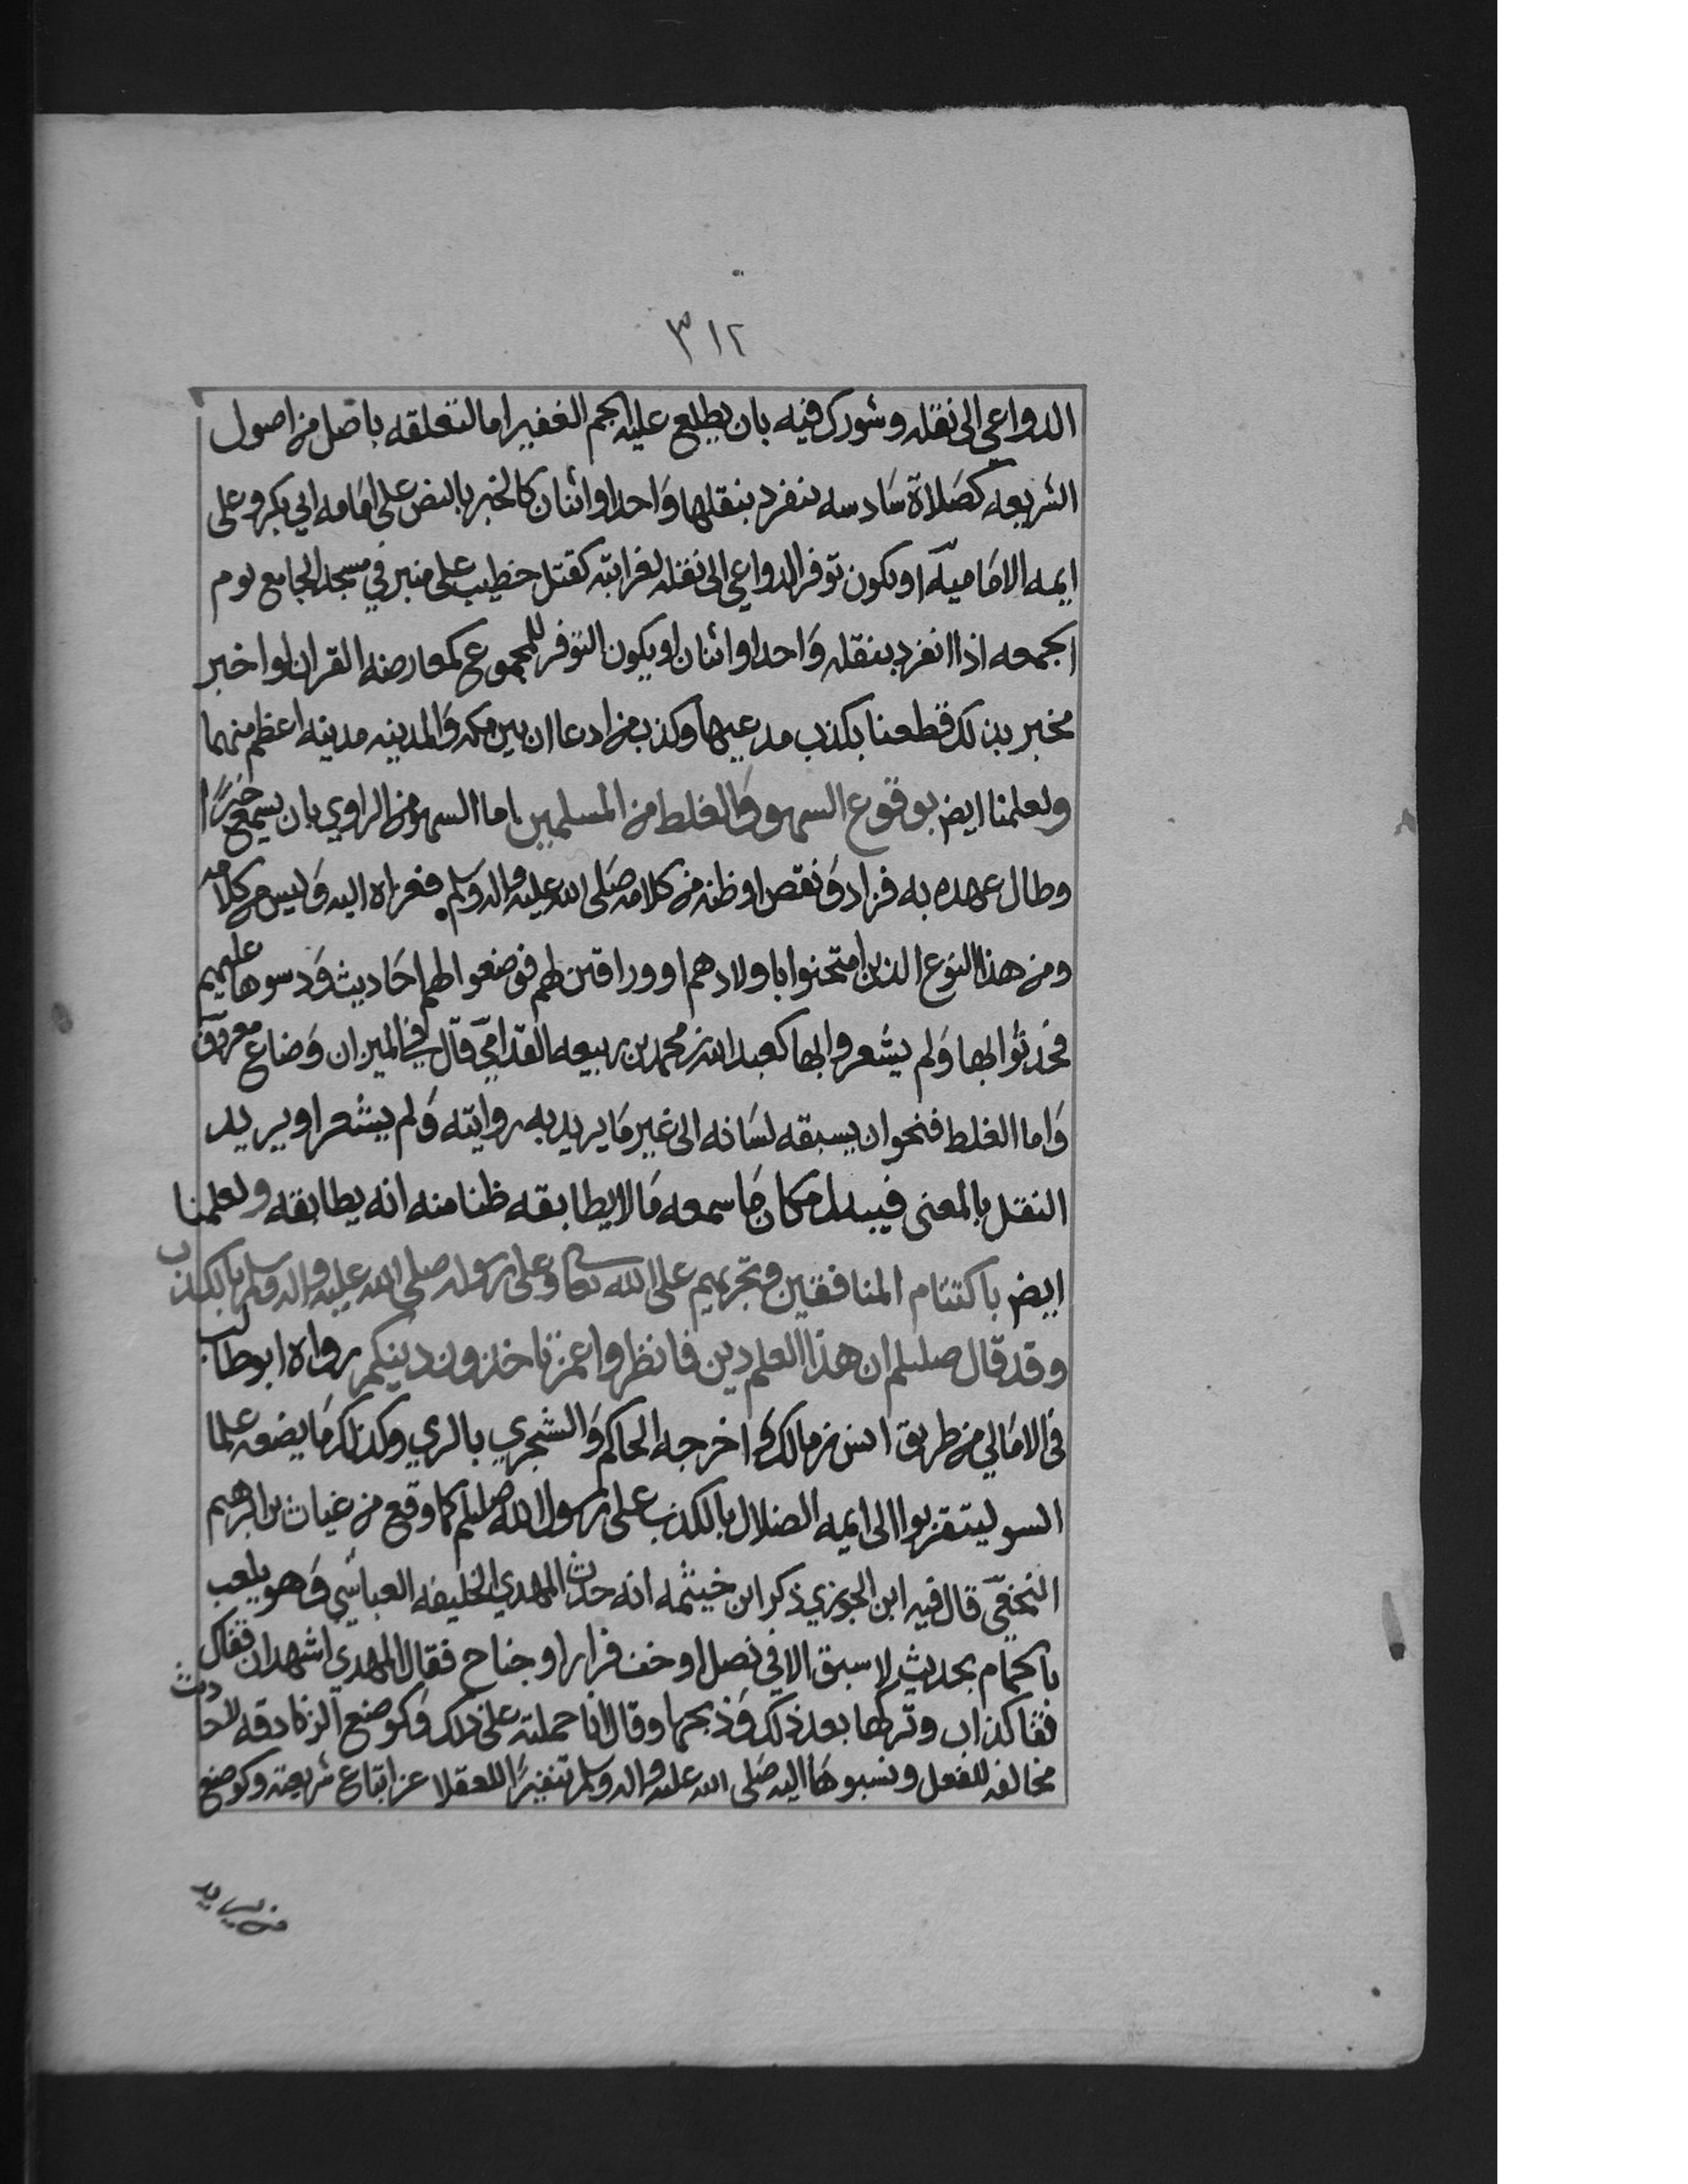 ٣١٢
الدواعي الى نقله وشورك فيه بان يطلع عليه الجم الغفير اما لتعلقه باصل من اصول
الشريعه كصَلاة سَادسه ينفرد بنقلها وَاحد او اثنان كالخبر بالنص على امَامه ابي بكر وعلى
ايمه الامَاميّه او يكون توفر الدواعي الى نقله لغرابته كقتل خطيب على منبر في مسجد الجامع يوم
الجمعه اذا انفرد بنقله وَاحد او اثنان او يكون التوفر للمجموع كمعارضه القران لو اخبر
مخبر بذلك قطعنا بكذب مدعيها وكذب من ادعا ان بين مكه وَالمدينه مدينه اعظم منهما
ولعلمنا ايض بوقوع السهو وَالغلط من المسلمين اما السهو من الراوي بان يسمع خبرًا
وطال عهده به فزاد وَنقص او ظنه من كلامه صَلى الله عليه واله وَسلم فعزاه اليه وَليس من كلامه
ومن هذا النوع الذين امتحنوا باولادهم او وراقين لهم فوضعوا لهم احَاديث وَدسوها عليهم
فحدثوا بها وَلم يشعروا بها كعبدالله بن محمد بن ربيعه القدامي قال في الميزان وَضاع معروف
وَاما الغلط فنحو ان يسبقه لسَانه الى غير مَا يريد به روايته وَلم يشعر او يريد
النقل بالمعنى فيبدل مكان مَا سمعه مَا لا يطابقه ظنا منه انه يطابقه ولعلمنا
ايض باكتتام المنافقين وتجريهم على الله تعا وعلى رسوله صلى الله عليه واله وسلم بالكذب
وقد قال صللم ان هذا العلم دين فانظروا عمن تاخذون دينكم رواه ابو طالب
في الامَالي من طريق انس بن مالك وَاخرجه الحاكم وَالشجري بالري وكذلك مَا يضعه علما
السو ليتقربوا الى ايمه الضلال بالكذب على رسول الله صللم كما وقع من غياث بن ابرهيم
النخعيّ قال فيه ابن الجوزي ذكر ابن خيثمه انه حدث المهدي الخليفه العباسي وَهو يلعب
بالحمام بحديث لا سبق الا في نصل او خف او جناح فقال المهدي اشهد ان قفاك
قفا كذاب وتركها بعد ذلك وَذبحها وقال انا حملته على ذلك وَكوضع الزنادقه لاحاديث
مخالفه للفعل ونسبوهَا اليه صَلى الله عليه واله وسلم تنفيرًا للعقلا عن اتباع شريعته وكوضع
من يريد